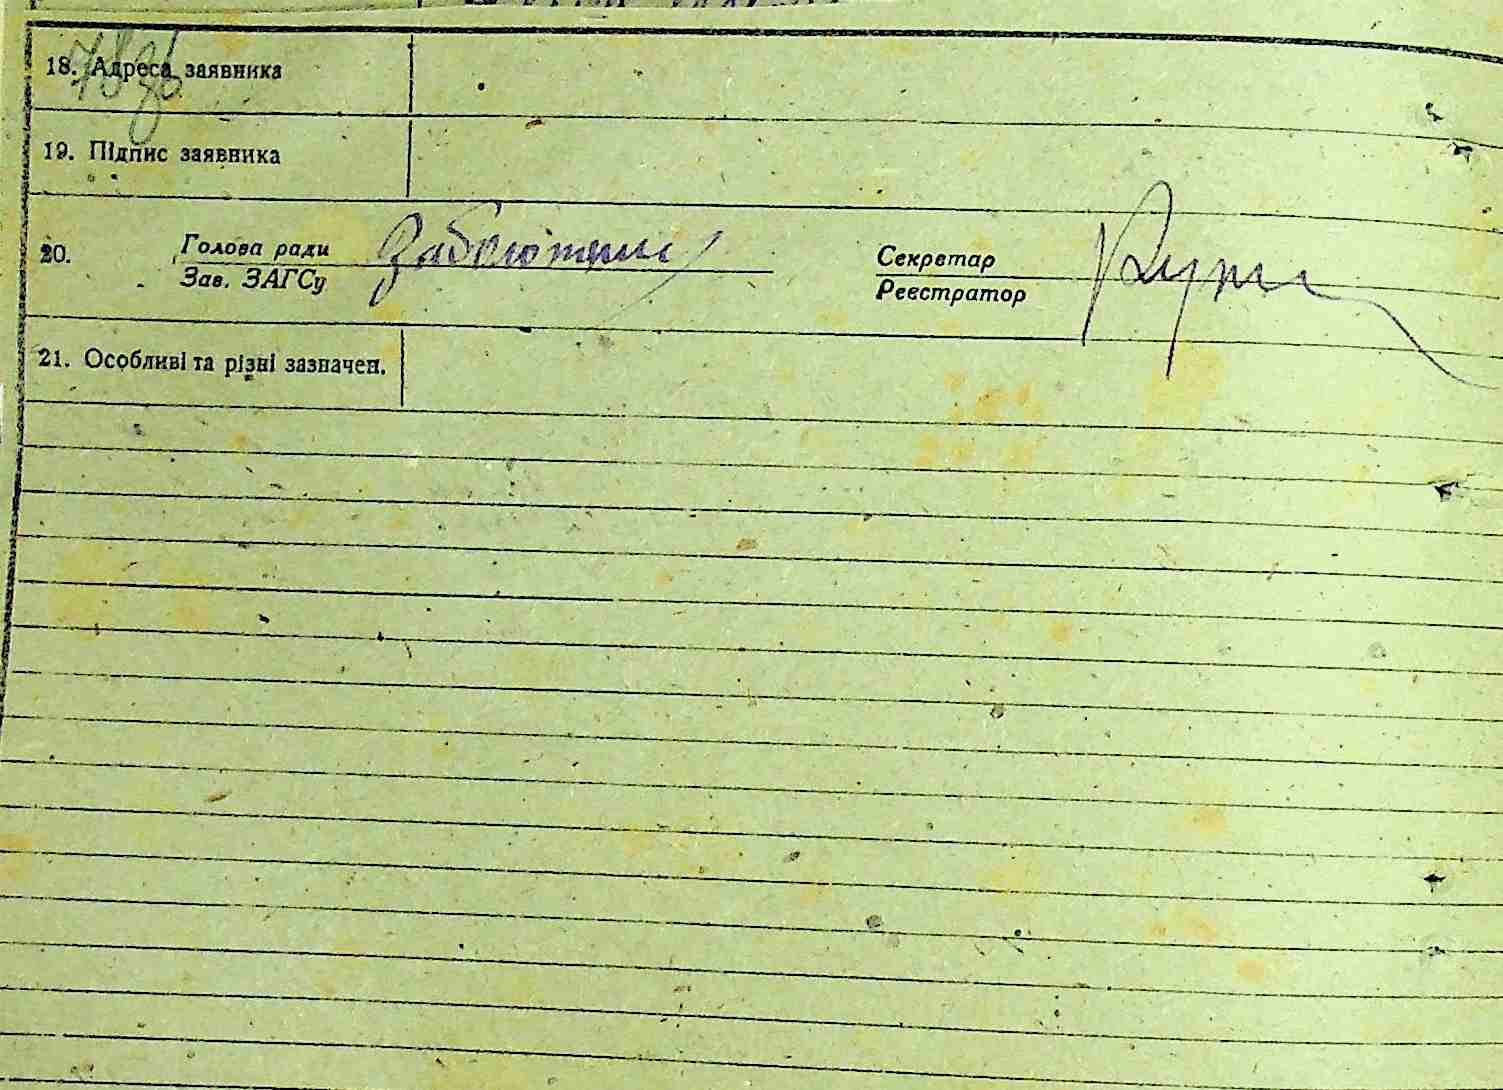 18. Адреса заявника
19. Підпис заявника
20. Голова ради Секретар
Зав. ЗАГСу Реєстратор
21. Особливі та різні зазначен.